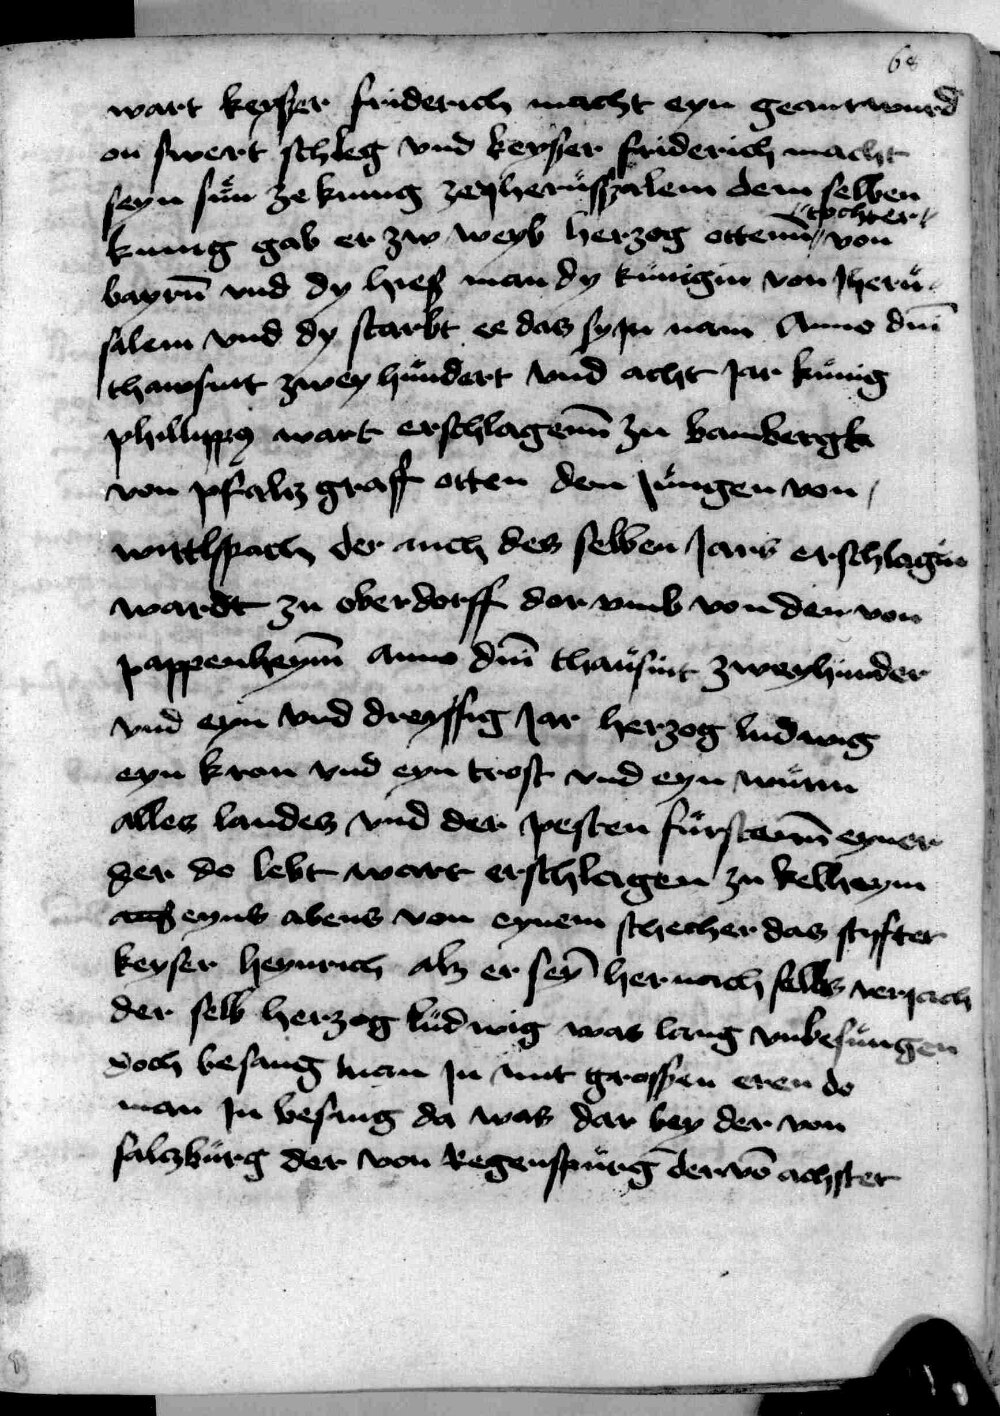 68
wart keysser friderich macht eyn geantwurd
on swert schleg vnd keysser friderich macht
seyn sün ze kunig ze Jherüsszalem dem selben
kunig gab er zw weyb herzog ottenn̄ tochter von
bayrn̄ vnd dy hieß man dy künigin von Jherü
salem vnd dy starbt ee das sy Jn nam Anno dnī
thawsint zwey hündert vnd acht Jar künig
phillippus wart erschlagenn̄ zu bambergk
von pfalczgraff otten dem Jüngen von
wittlspach der auch des selben Jars erschlagen
wardt zu oberdorff dar vmb von den von
pappenheym̄ anno dnī thaüsint zweyhunder
vnd eyn vnd dreyssig Jar herzog ludwig
eyn kron vnd eyn trost vnd eyn würm
alles landes vnd der pesten fürstenn̄ eyner
der do lebt wart erschlagen zu kelheym
eyns abens von eynem schecher das styfter
keyser heynrich alz er seyn̄ hernach selbs verjach
der selb herzog lüdwig was lang vnbesüngen
doch besang man Jn mit grossen eren do
man Jn besang da was dar bey der von
salczbürg der von Regenspürg der vō achster